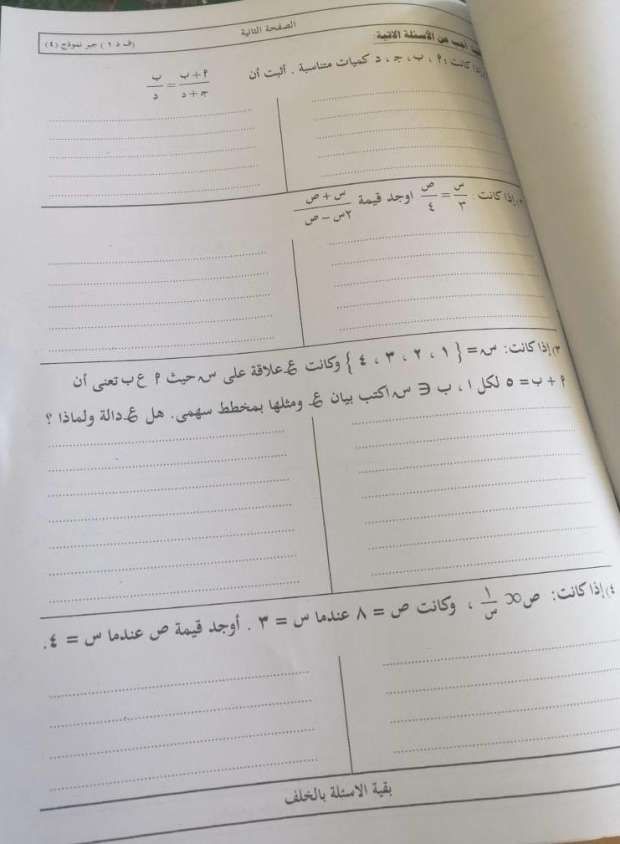 الصفحة الثانية
(ف د ١ ) جبر نموذج (٤)
أجب عن الأسئلة الآتية:
إذا كانت: ٩ ، ب ، جـ ، د كميات متناسبة . أثبت أن (٩ + ب)/(جـ + د) = ب/د
إذا كانت س/٣ = ص/٤ اوجد قيمة (س + ص)/(٢س − ص)
٣) إذا كانت: س = { ١ ، ٢ ، ٣ ، ٤ } وكانت ع علاقة على س حيث ٩ ع ب تعنى أن
٩ + ب = ٥ لكل ا ، ب ∈ س اكتب بيان ع ومثلها بمخطط سهمى. هل ع دالة ولماذا ؟
٤) إذا كانت: ص ∝ ١/س ، وكانت ص = ٨ عندما س = ٣ . أوجد قيمة ص عندما س = ٤.
بقية الاسئلة بالخلف